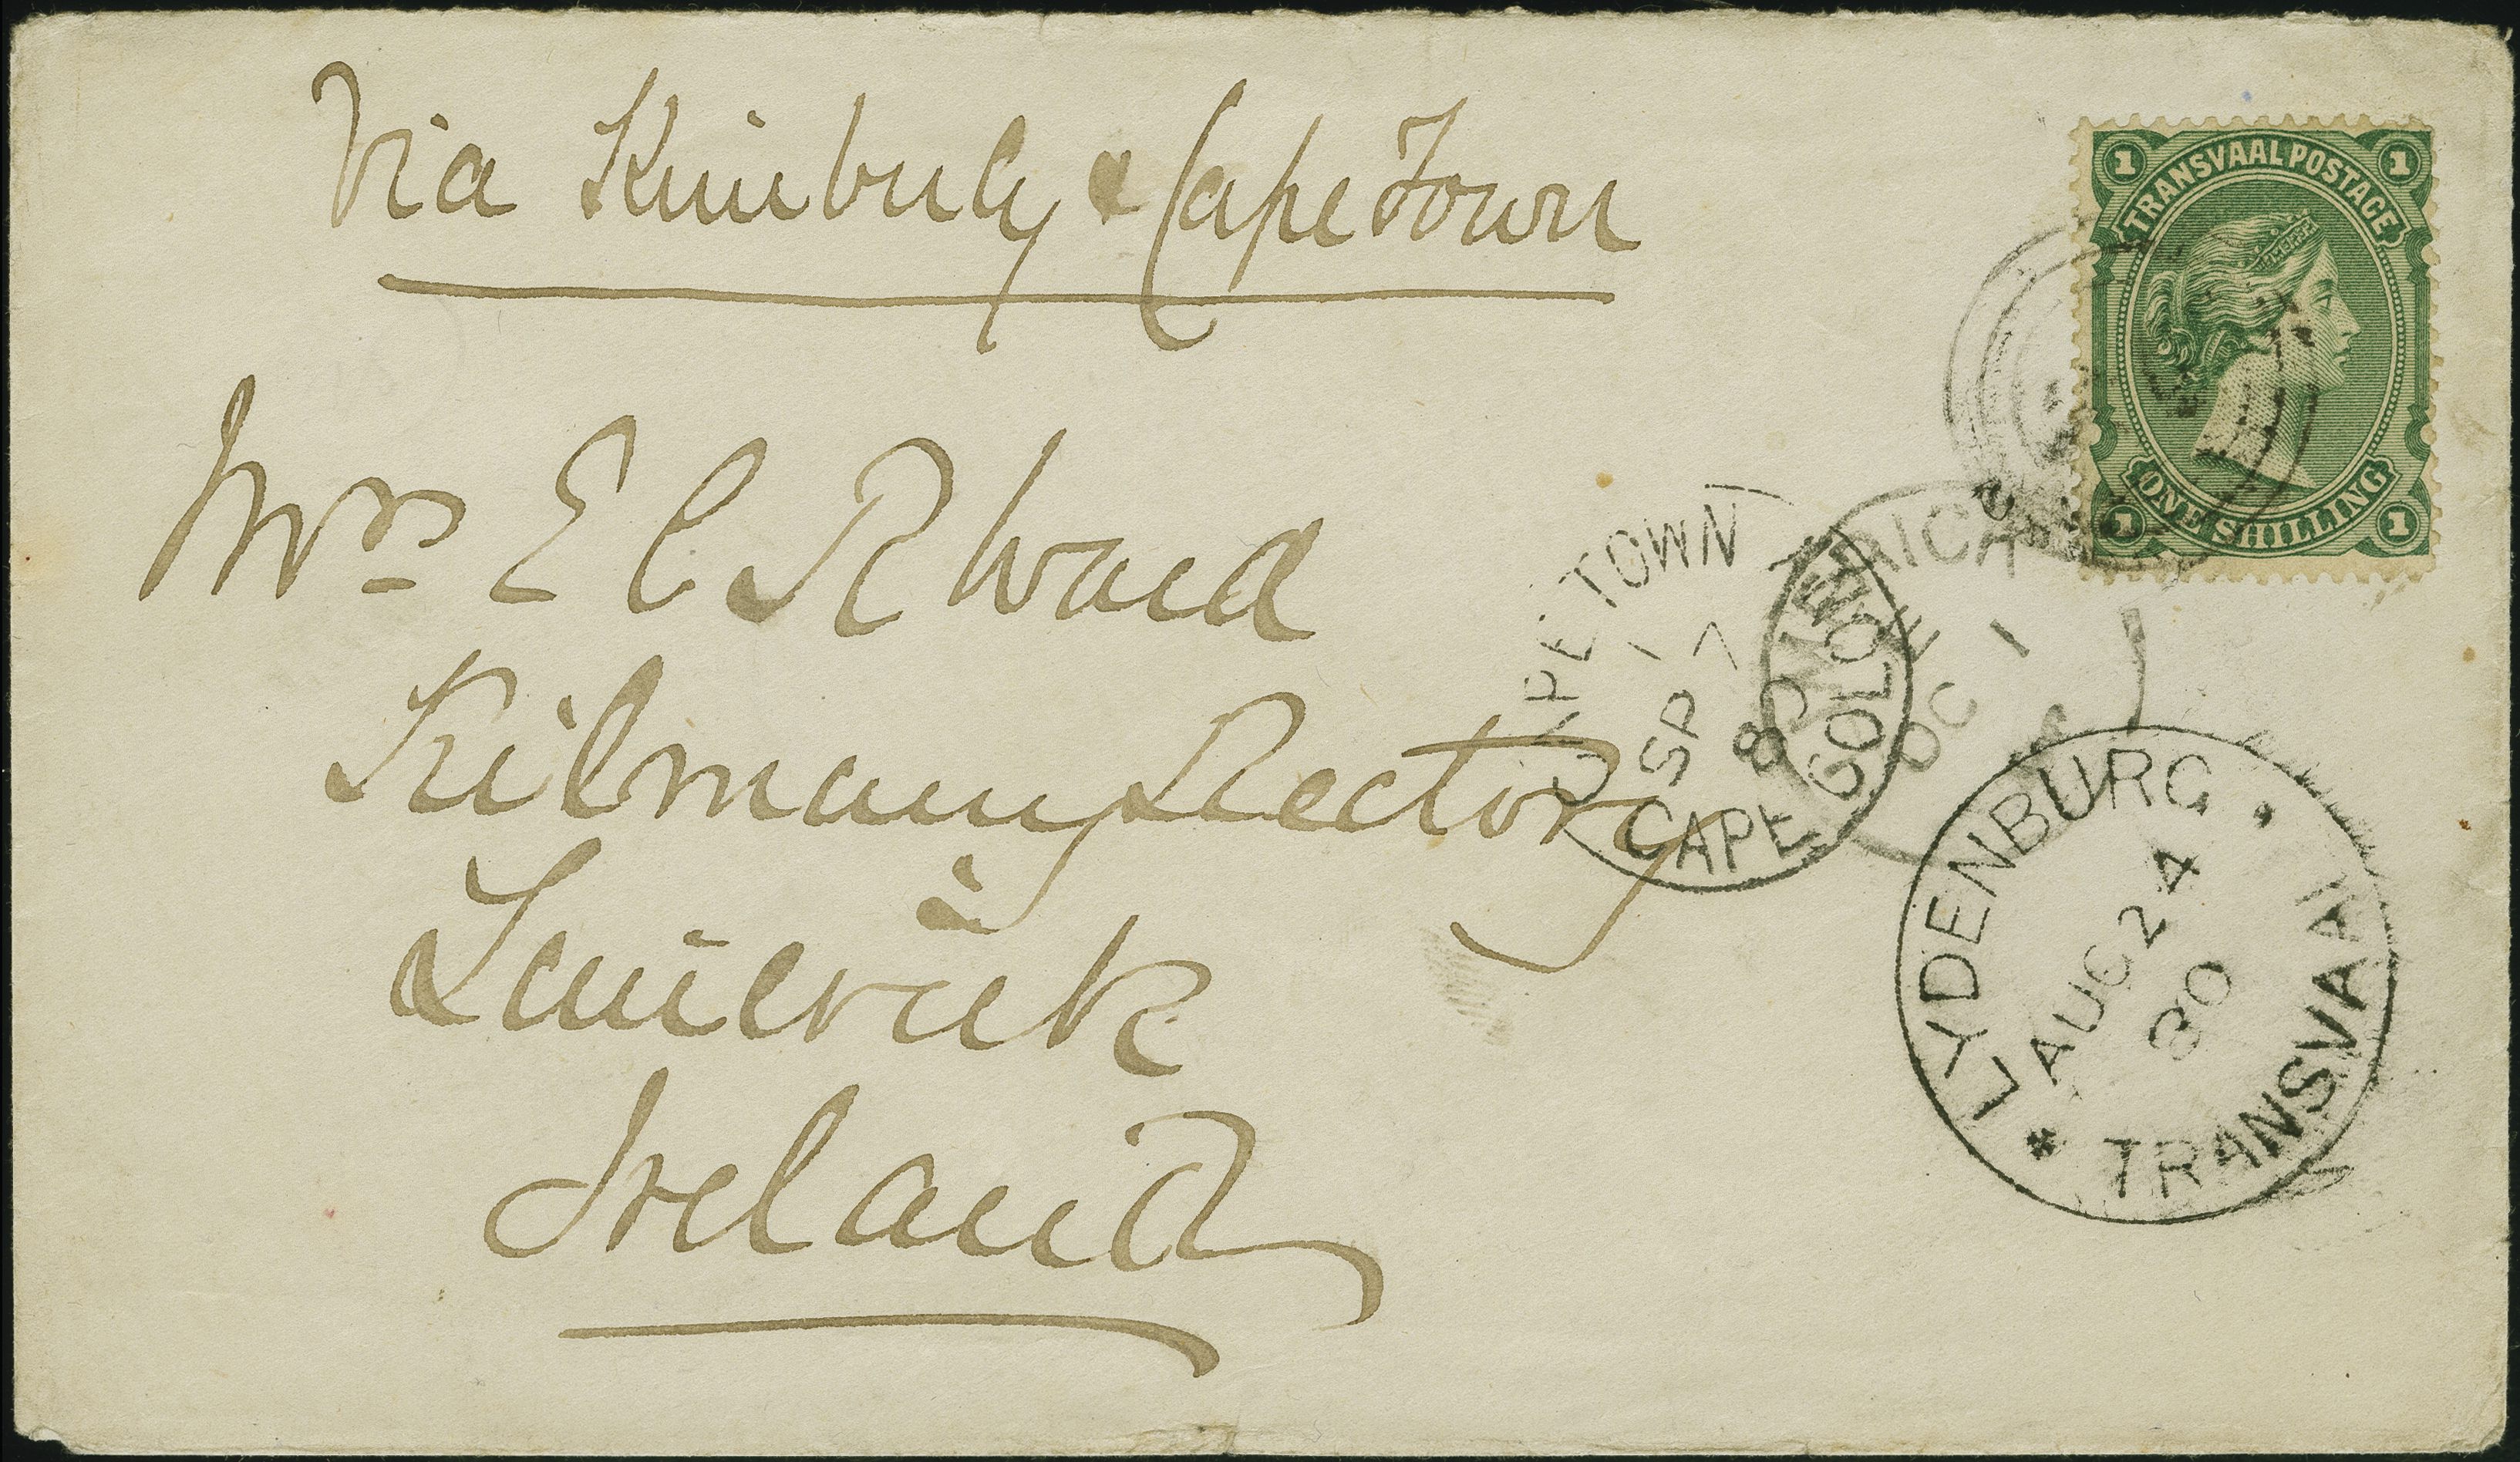 Via Kimberly & Cape Town
TRANSVAAL POSTAGE
1 1
ONE SHILLING
1 1
Mrs E C R Ward
Kilmany Rectory
Limerick
Ireland
CAPE TOWN
SP 17
80
CAPE COLO
RICA
OC 1
LYDENBURG
AUG 24
80
TRANSVAAL